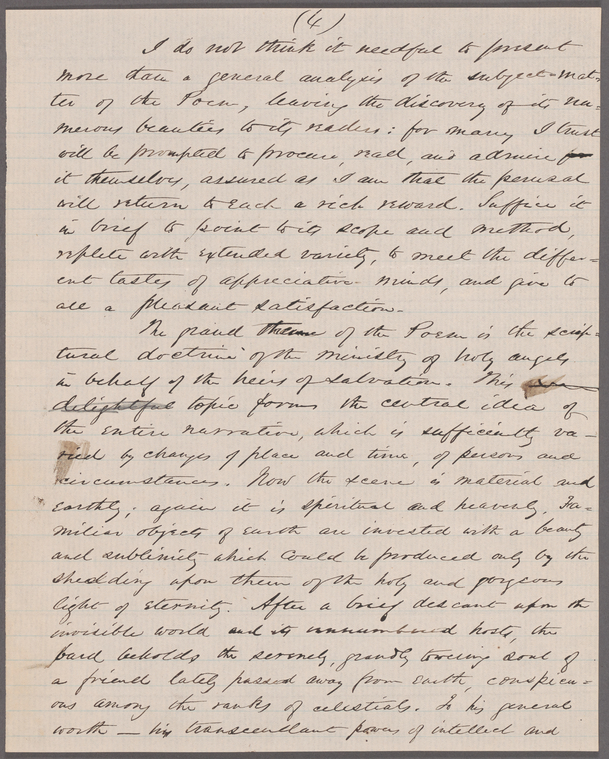 (4)
I do not think it needful to present
more than a general analysis of the subject-mat-
ter of the Poem, leaving the discovery of its nu-
merous beauties to its readers: for many I trust
will be prompted to procure, read, and admire for
it themselves, assured as I am that the perusal
will return to each a rich reward. Suffice it
in brief to point to its scope and method,
replete with extended variety, to meet the differ-
ent tastes of appreciative minds, and give to
all a pleasant satisfaction.
The grand theme of the Poem is the scrip-
tural doctrine of the ministry of holy angels
in behalf of the heirs of salvation. This
delightful topic forms the central idea of
the entire narration, which is sufficiently va-
ried by changes of place and time, of persons and
circumstances. Now the scene is material and
earthly; again it is spiritual and heavenly. Fa-
miliar objects of earth are invested with a beauty
and sublimity which could be produced only by the
shedding upon them of the holy and gorgeous
light of eternity. After a brief descant upon the
invisible world and its unnumbered hosts, the
bard beholds the serenely, grandly towering soul of
a friend lately passed away from earth, conspicu-
ous among the ranks of celestials. To his general
worth — his transcendant powers of intellect and